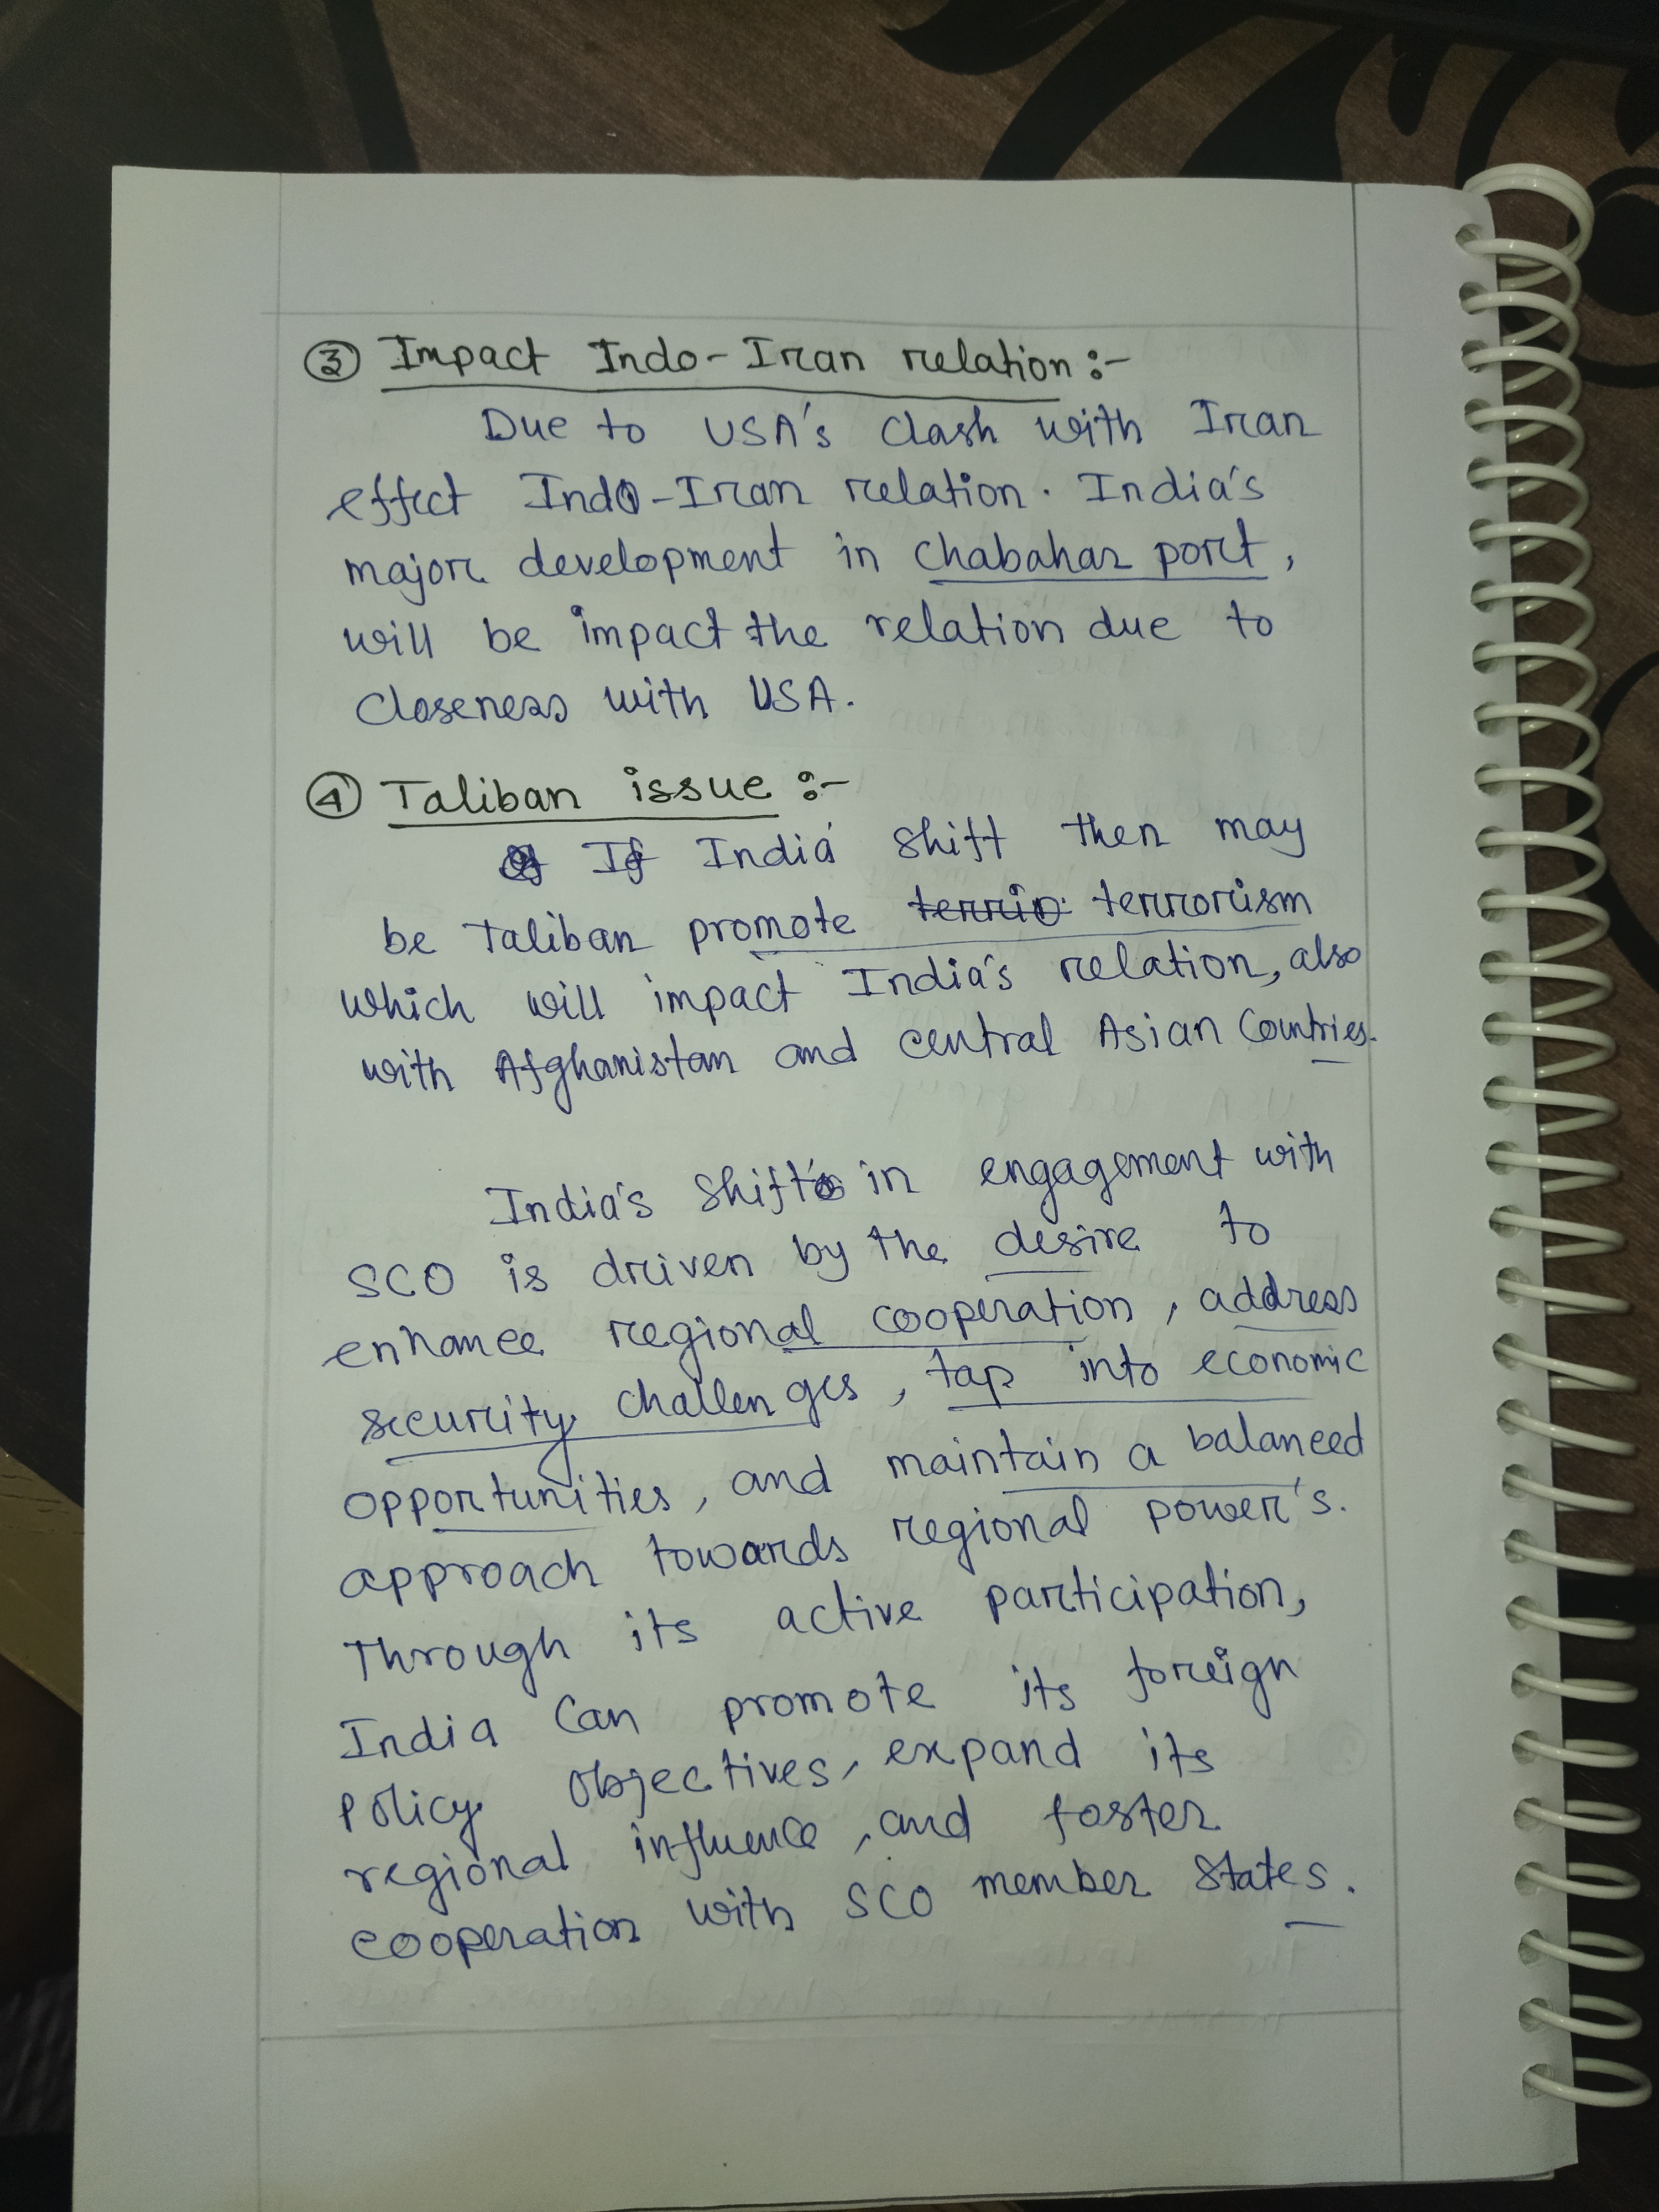 ③ Impact Indo-Iran relation :-
Due to USA's clash with Iran
effect Indo-Iran relation. India's
major development in Chabahar port,
will be impact the relation due to
closeness with USA.
④ Taliban issue :-
If India shift then may
be Taliban promote terrorism
which will impact India's relation, also
with Afghanistan and central Asian Countries.
India's shift in engagement with
SCO is driven by the desire to
enhance regional cooperation, address
security challenges, tap into economic
opportunities, and maintain a balanced
approach towards regional power's.
Through its active participation,
India Can promote its foreign
policy objectives, expand its
regional influence, and foster
cooperation with SCO member States.